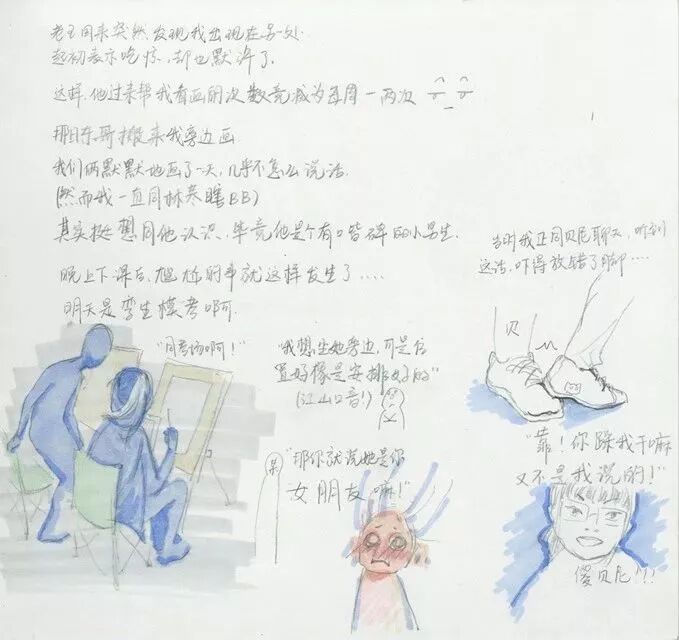 老王同来突然发现我出现在另一处.
起初表示吃惊,却也默许了.
这样,他过来帮我看画的次数竟成为每周一两次
那日东哥搬来我旁边画.
我们俩默默地画了一天,几乎不怎么说话.
(然而我一直同林寒瞎BB)
其实挺想同他认识,毕竟他是个有口皆碑的小男生.
晚上下课后,尴尬的事就这样发生了....
明天是孪生模考啊阿.
当时我正同贝尼聊天,听到
这话,吓得放错了脚....
贝
"同考场啊!"
"我想坐她旁边,可是位
置好像是安排好的"
(江山口音!)
呆
"那你就说她是你
女朋友嘛!"
"靠!你踩我干嘛
又不是我说的!"
傻贝尼!!!